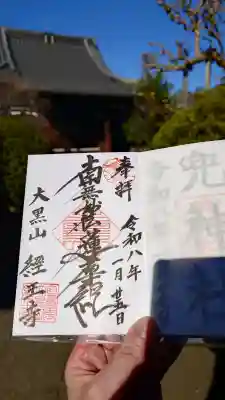 奉拝
令和八年
一月廿五日
南無妙法蓮華経
大黒山
経王寺